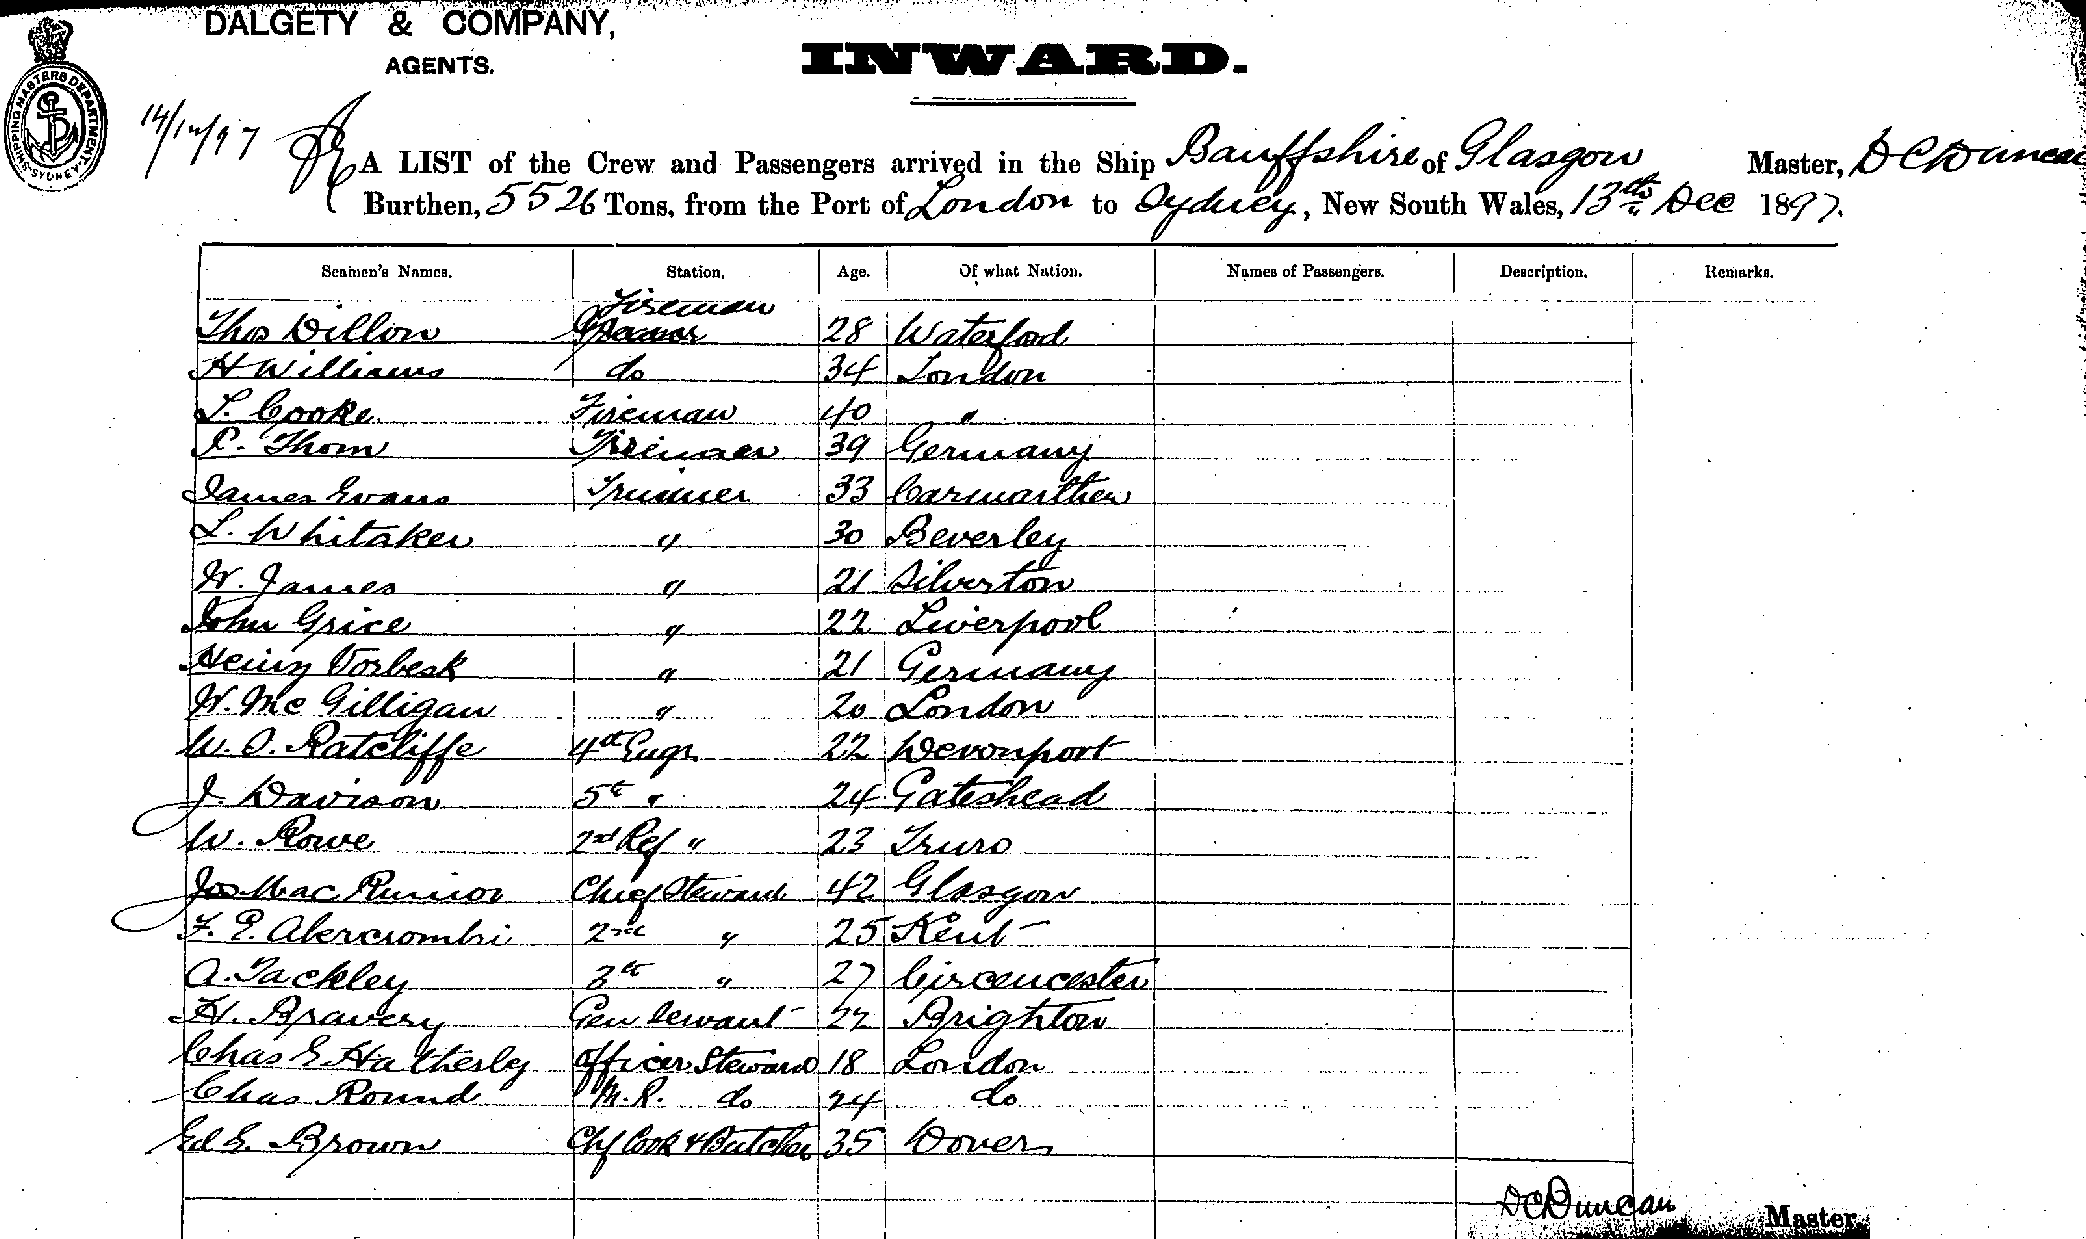 DALGETY & COMPANY,
AGENTS.
INWARD.
SHIPPING MASTERS DEPARTMENT
SYDNEY
14/12/97
A LIST of the Crew and Passengers arrived in the Ship Banffshire of Glasgow Master, D C Duncan
Burthen, 5526 Tons, from the Port of London to Sydney, New South Wales, 13th Dec 1897.
Seamen's Names. Station. Age. Of what Nation. Names of Passengers. Description. Remarks.
Fireman
Thos Dillon 28 Waterford
H Williams do 34 London
L. Cooke Fireman 40 "
P. Thom Fireman 39 Germany
James Evans Trimmer 33 Carmarthen
L. Whitaker " 30 Beverley
W. James " 21 Silverton
John Grice " 22 Liverpool
Heinz Vorbesk " 21 Germany
W. Mc Gilligan " 20 London
W. O. Ratcliffe 4th Engr 22 Devonport
J. Davison 5th " 24 Gateshead
W. Rowe 2nd Ref " 23 Truro
Jos Mac Rumor Chief Steward 42 Glasgow
F. E. Abercrombi 2nd " 25 Kent
A. Tackley 3th " 27 Cirencester
H. Bravery Gen Servant 22 Brighton
Chas E Hatherley Officers Steward 18 London
Chas Round M. R. do 24 do
Ed E. Brown Chf Cook & Butcher 35 Dover
D C Duncan Master